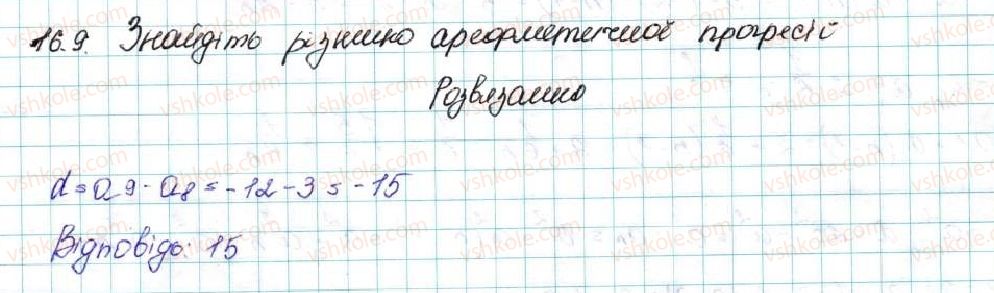 16.9. Знайдіть різницю арефметичної прогресії
Розвязанню
d = a9 - a8 = -12 - 3 = -15
Відповідь: 15